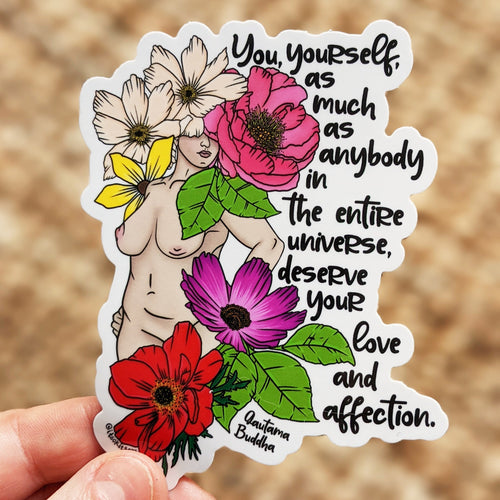 You, yourself,
as
much
as
anybody
in
the entire
universe,
deserve
your
love
and
affection.
Gautama
Buddha